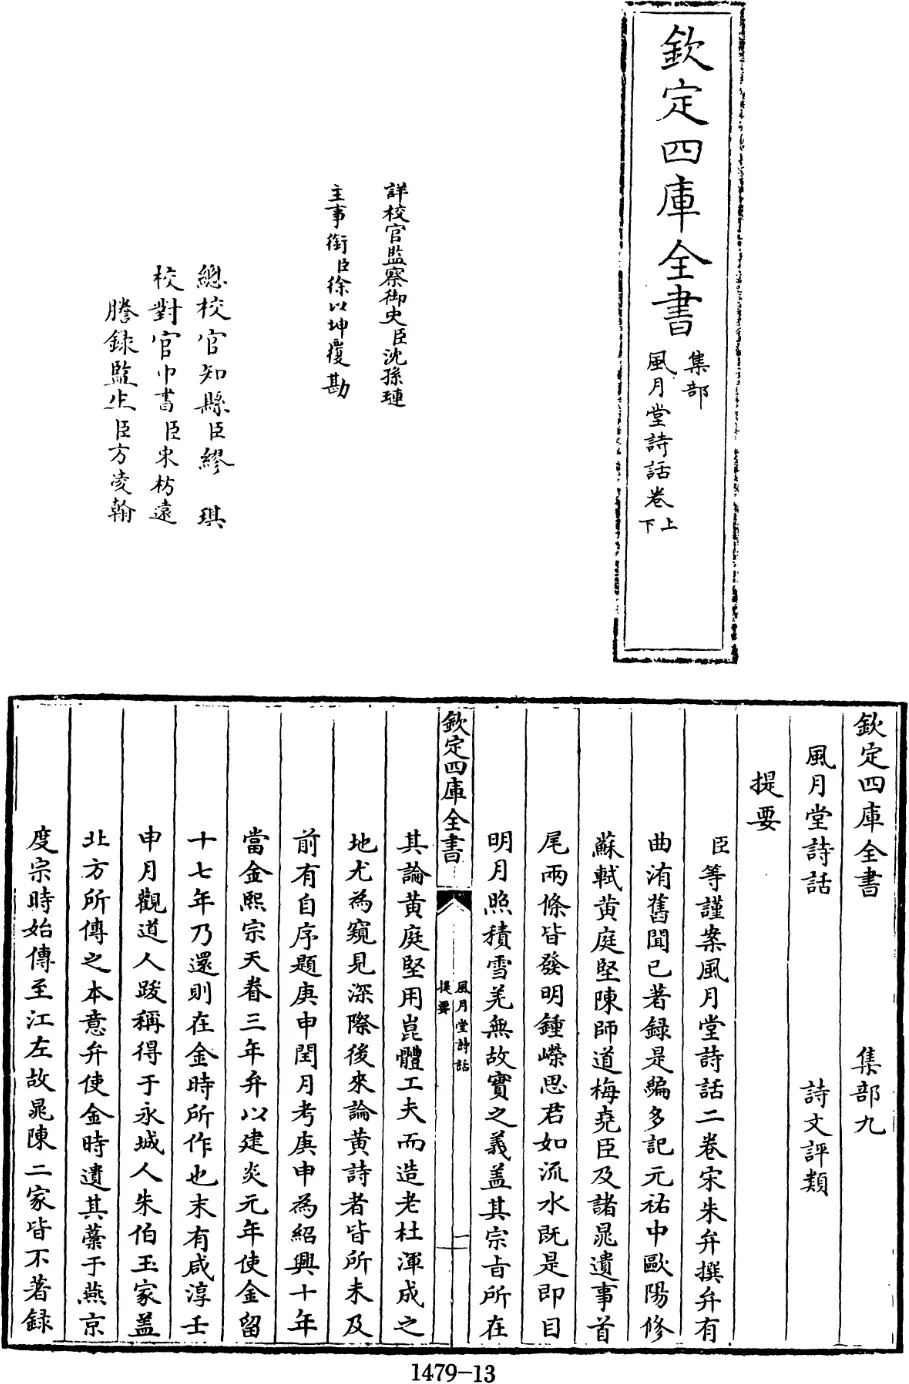 欽定四庫全書
集部
風月堂詩話卷上下
詳校官監察御史臣沈孫璉
主事銜臣徐以坤覆勘
總校官知縣臣繆琪
校對官中書臣宋枋遠
謄錄監生臣方凌翰
欽定四庫全書 集部九
風月堂詩話 詩文評類
提要
臣等謹案風月堂詩話二卷宋朱弁撰弁有
曲洧舊聞已著録是編多記元祐中歐陽修
蘇軾黄庭堅陳師道梅堯臣及諸晁遺事首
尾兩條皆發明鍾嶸思君如流水既是即目
明月照積雪羌無故實之義盖其宗旨所在
欽定四庫全書
風月堂詩話
提要
一
其論黄庭堅用崑體工夫而造老杜渾成之
地尤為窺見深際後來論黄詩者皆所未及
前有自序題庚申閏月考庚申為紹興十年
當金熙宗天眷三年弁以建炎元年使金留
十七年乃還則在金時所作也末有咸淳壬
申月觀道人跋稱得于永城人朱伯玉家盖
北方所傳之本意弁使金時遺其藁于燕京
度宗時始傳至江左故晁陳二家皆不著録
1479-13